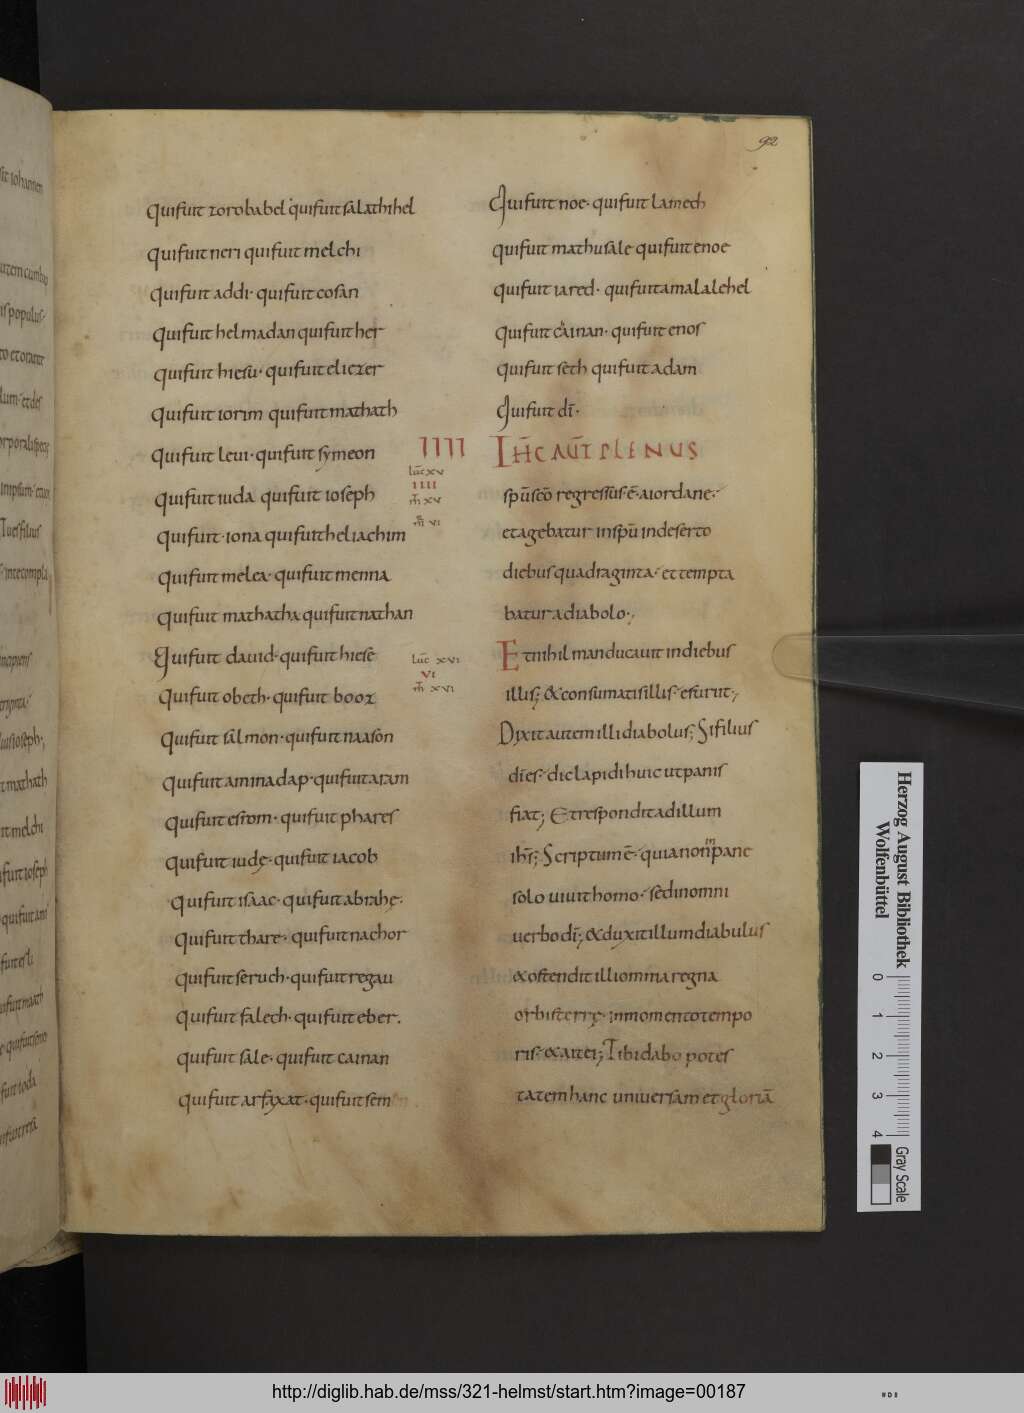 92
Quifuit zorobabel quifuit salathihel
Quifuit neri quifuit melchi
Quifuit addi· quifuit cosan
Quifuit helmadan quifuit her
Quifuit hiesu· quifuit eliezer
Quifuit iorim quifuit mathath
Quifuit leui· quifuit symeon
Quifuit iuda quifuit ioseph
Quifuit· iona quifuit heliachim
Quifuit melea· quifuit menna
Quifuit mathatha quifuit nathan
Quifuit dauid· quifuit hiesē
Quifuit obeth· quifuit booz
Quifuit salmon· quifuit naason
Quifuit aminadap· quifuit aram
Quifuit esrom· quifuit phares
Quifuit iudę· quifuit iacob
Quifuit isaac· quifuit abrahę·
Quifuit thare· quifuit nachor
Quifuit seruch· quifuit regau
Quifuit falech· quifuit eber.
Quifuit sale· quifuit cainan
Quifuit arfaxat· quifuit sem
IIII
luc̄ xv
IIII
m̄ xv
m̄ vi
luc̄ xvi
VI
m̄ xvi
Quifuit noe· quifuit lamech
Quifuit mathusale quifuit enoe
Quifuit iared· quifuit amalalehel
Quifuit cainan· quifuit enos
Quifuit seth quifuit adam
Quifuit dī·
IH̄C AUT̄ PLENUS
spū scō regressus ē· aiordane·
et agebatur inspū indeserto
diebus quadraginta· et tempta
batur adiabolo·,
Et nihil manducauit indiebus
illis; & consumatis illis· esurut·,
Dixit autem illi diabolus; Si filius
dī es· dic lapidi huic ut panis
fiat; Et respondit ad illum
ih̄s; Scriptum ē· quia non in pane
solo uiuit homo· sed inomni
uerbo dī; & duxit illum diabulus
& ostendit illi omnia regna
orbis terrę· inmomento tempo
ris· & ait ei; Tibi dabo potes
tatem hanc uniuersam et gloriā
Herzog August Bibliothek
Wolfenbüttel
0 1 2 3 4
Gray Scale
http://diglib.hab.de/mss/321-helmst/start.htm?image=00187